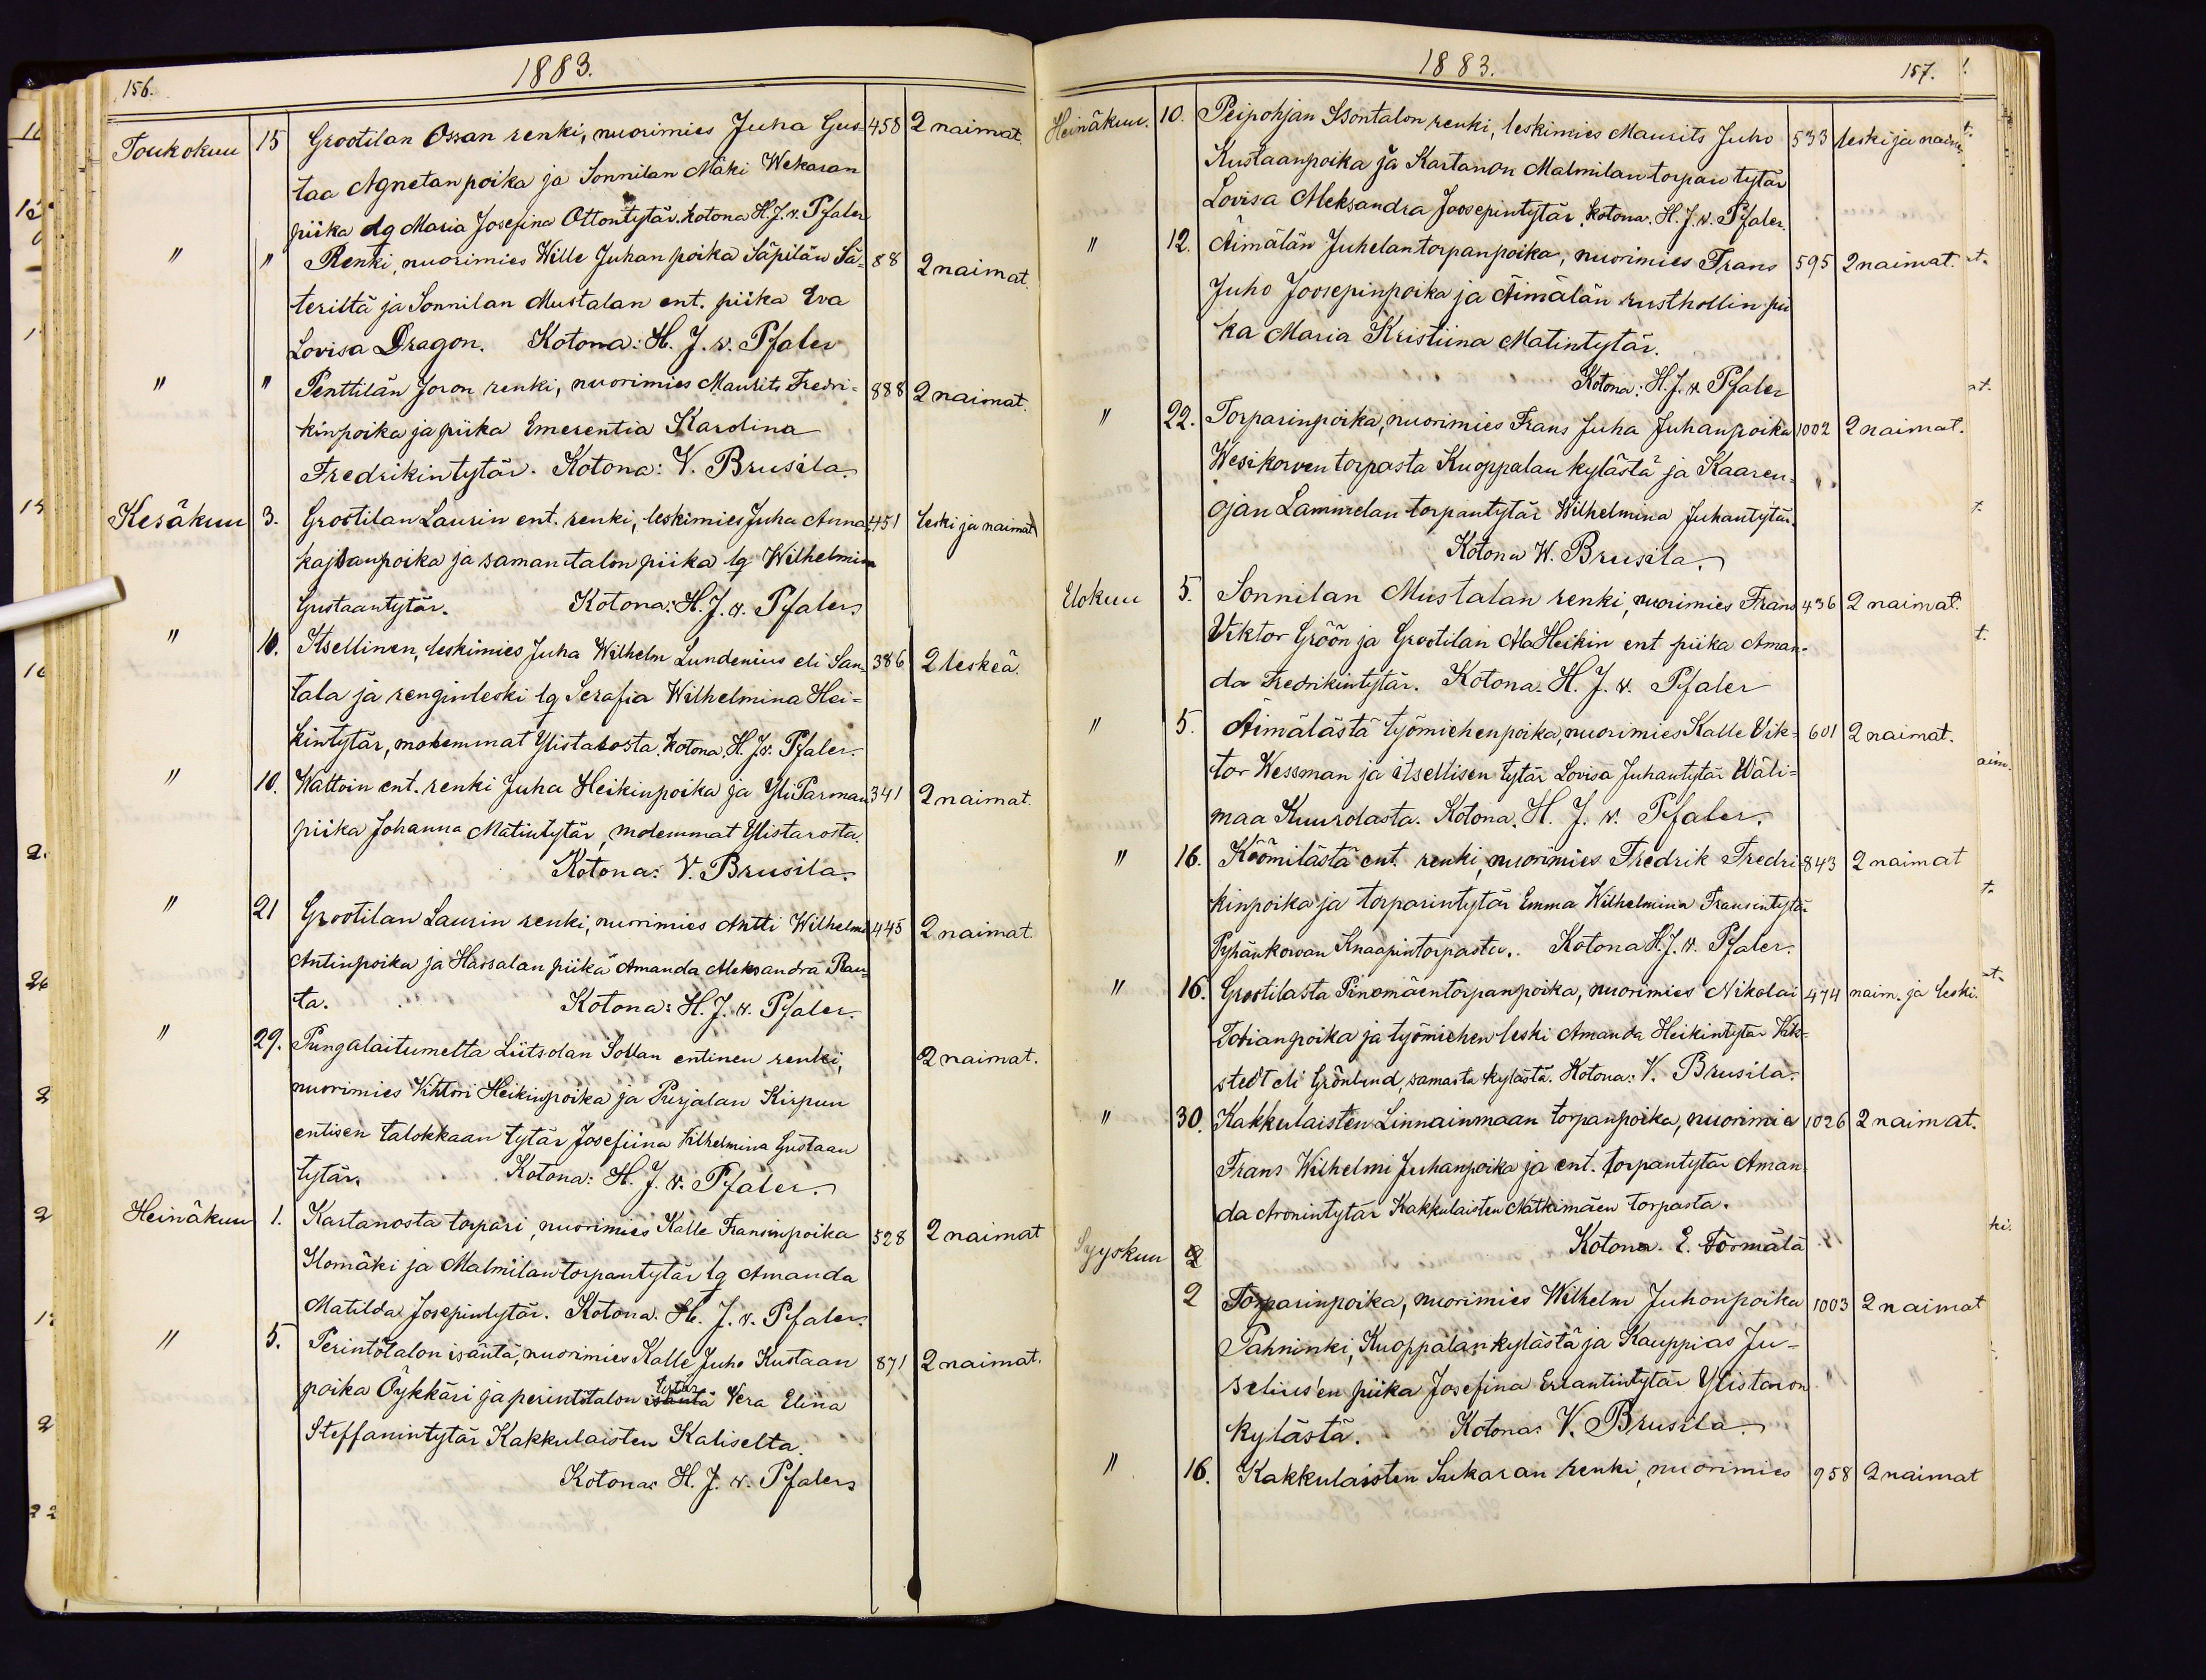 156.
1883.
Toukokuu 15 Grootilan Ossan renki, nuorimies Juha Gus- 458 2 naimat.
taa Agnetanpoika ja Sonnilan Mäki Wekaran
piika Maria Josefina Ottontytär. Kotona H. J. v. Pfaler
" " Renki, nuorimies Wille Juhanpoika Säpilän Sä- 88 2 naimat.
teriltä ja Sonnilan Mustalan ent. piika Eva
Lovisa Dragon. Kotona: H. J. v. Pfaler
" " Penttilän Joron renki, nuorimies Maurits Fredri- 888 2 naimat.
kinpoika ja piika Emerentia Karolina
Fredrikintytär. Kotona: V. Brusila.
Kesäkuu 3. Grootilan Laurin ent. renki, leskimies Juha Anna 451 leski ja naimat
kajsanpoika ja saman talon piika lq Wilhelmina
Gustaantytär. Kotona: H. J. v. Pfaler.
" 10. Itsellinen, leskimies Juha Wilhelm Lundenius eli San- 386 2 leskeä.
tala ja renginleski lq Serafia Wilhelmina Hei-
kintytär, molemmat Ylistarosta. Kotona. H. J. v. Pfaler.
" 10. Wattoin ent. renki Juha Heikinpoika ja YliParman 341 2 naimat.
piika Johanna Matintytär, molemmat Ylistarosta.
Kotona: V. Brusila.
" 21 Grootilan Laurin renki, nuorimies Antti Wilhelmi 445 2 naimat.
Antinpoika ja Hassalan piika Amanda Aleksandra Rau-
ta. Kotona: H. J. v. Pfaler.
" 29. Pungalaitumelta Liitsolan Sollan entinen renki, 2 naimat.
nuorimies Vihtori Heikinpoika ja Purjalan Kirpun
entisen talokkaan tytär Josefiina Vilhelmina Gustaan
tytär. Kotona: H. J. v. Pfaler.
Heinäkuu 1. Kartanosta torpari, nuorimies Kalle Fransinpoika 528 2 naimat
Ilomäki ja Malmilan torpantytär lq Amanda
Matilda Josepintytär. Kotona. H. J. v. Pfaler.
" 5. Perintötalon isäntä, nuorimies Kalle Juho Kustaan 871 2 naimat.
poika Öykkäri ja perintötalon isäntä tytär Vera Elina
Steffanintytär Kakkulaisten Kaliselta.
Kotona: H. J. v. Pfaler
1883.
157.
Heinäkuu. 10. Peipohjan Isontalon renki, leskimies Maurits Juho 533 leski ja naim.
Kustaanpoika ja Kartanon Malmilan torpan tytär
Lovisa Aleksandra Joosepintytär. Kotona. H. J. v. Pfaler.
" 12. Äimälän Juhelan torpanpoika, nuorimies Frans 595 2 naimat.
Juho Joosepinpoika ja Äimälän rusthollin pii
ka Maria Kristiina Matintytär.
Kotona: H. J. v. Pfaler
" 22. Torparinpoika, nuorimies Frans Juha Juhanpoika 1002 2 naimat.
Wesikorven torpasta Kuoppalan kylästä ja Kaaren-
ojan Lammelan torpantytär Wilhelmina Juhantytär.
Kotona W. Brusila.
Elokuu 5. Sonnilan Mustalan renki, nuorimies Frans 436 2 naimat.
Viktor Gröön ja Grootilan AlaHeikin ent piika Aman-
da Fredrikintytär. Kotona. H. J. v. Pfaler
" 5. Äimälästä työmiehenpoika, nuorimies Kalle Vik- 601 2 naimat.
tor Wessman ja itsellisen tytär Lovisa Juhantytär Wäli-
maa Kuurolasta. Kotona. H. J. v. Pfaler.
" 16. Köömilästä ent. renki, nuorimies Fredrik Fredri 843 2 naimat
kinpoika ja torparintytär Emma Wilhelmina Fransintytär
Pyhänkorvan Knaapintorpasta. Kotona H. J. v. Pfaler.
" 16. Grootilasta Pinomäentorpanpoika, nuorimies Nikolai 474 naim. ja leski.
Tobianpoika ja työmiehen leski Amanda Heikintytär Vik-
stedt eli Grönlund, samasta kylästä. Kotona: V. Brusila.
" 30. Kakkulaisten Linnainmaan torpanpoika, nuorimies 1026 2 naimat.
Frans Wilhelmi Juhanpoika ja ent. torpantytär Aman-
da Aronintytär Kakkulaisten Matkimäen torpasta.
Kotona. E. Törmälä
Syyskuu 2
2 Torparinpoika, nuorimies Wilhelm Juhonpoika 1003 2 naimat
Pahninki, Kuoppalan kylästä ja Kauppias Ju-
selius'en piika Josefina Erlantintytär Ylistaron
kylästä. Kotona: V. Brusila.
" 16. Kakkulaisten Sukaran renki, nuorimies 958 2 naimat